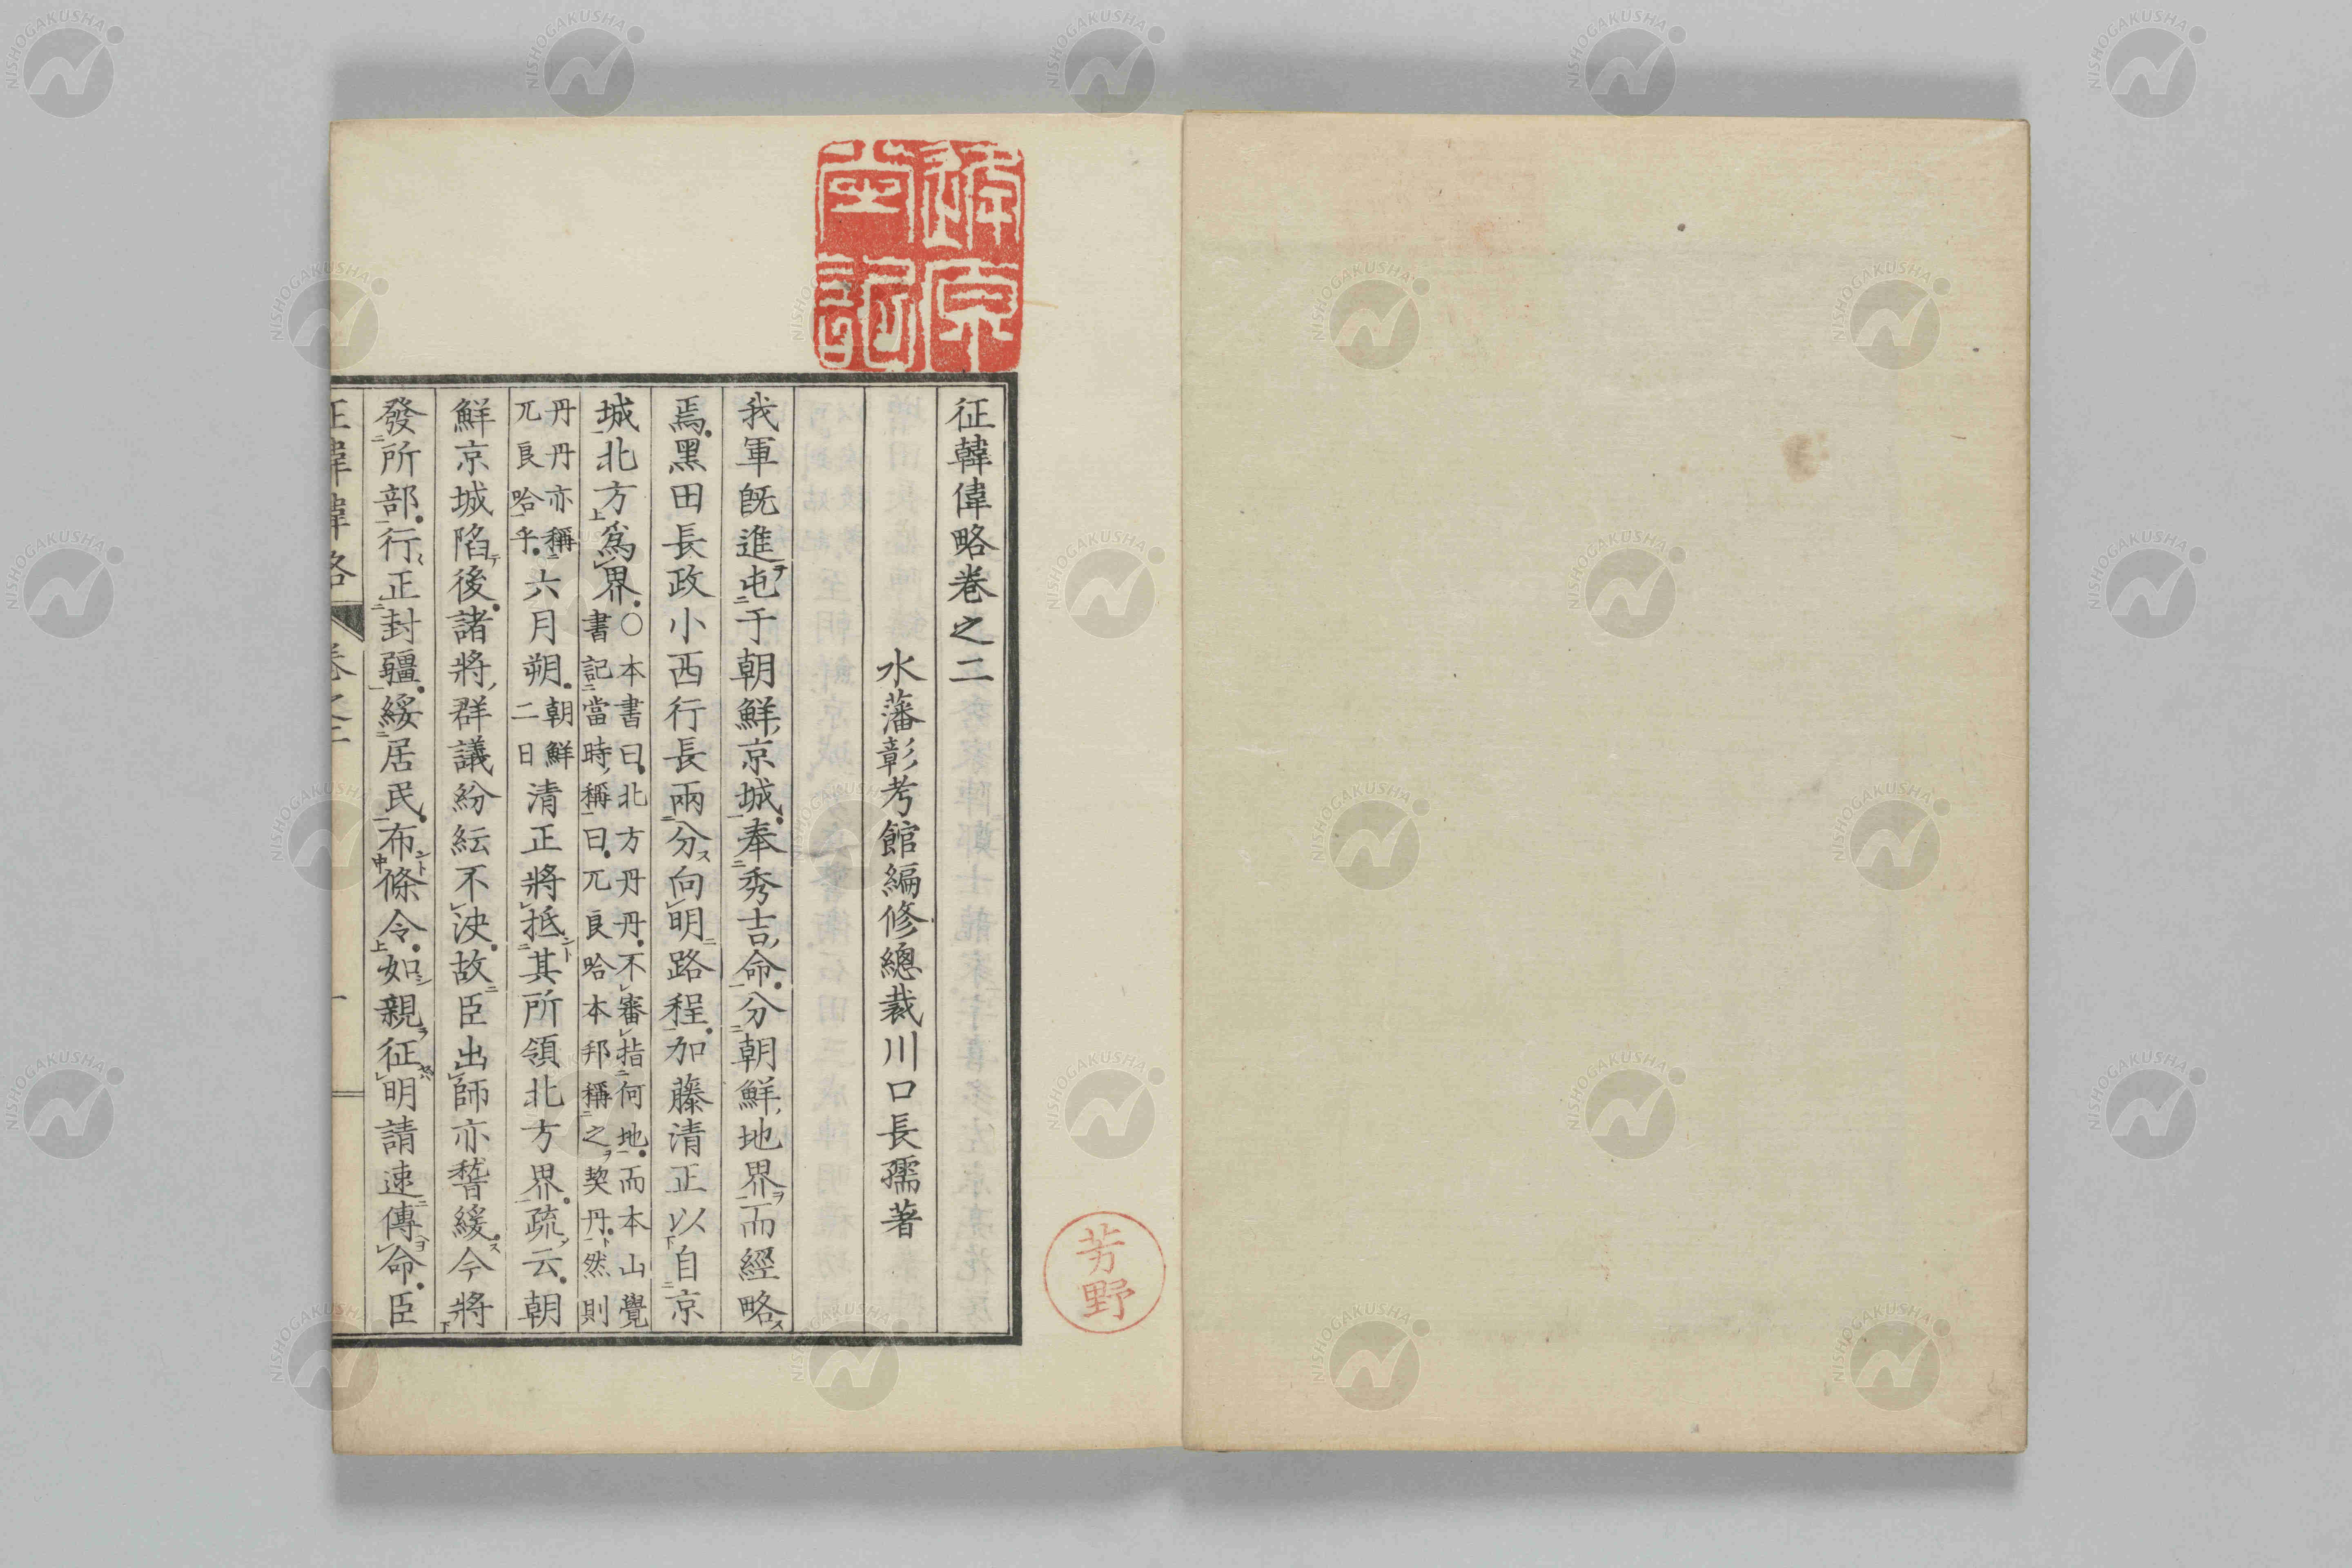 征韓偉略卷之二
水藩彰考館編修總裁川口長孺著
我軍既進屯于朝鮮京城奉秀吉命分朝鮮地界而經略
焉黑田長政小西行長兩分向明路程加藤清正以自京
城北方爲界○本書曰北方丹丹不審指何地而本山覺
書記當時稱曰兀良哈本邦稱之契丹然則
丹丹亦稱
兀良哈乎六月朔朝鮮
二日清正將抵其所領北方界疏云朝
鮮京城陷後諸將群議紛紜不決故臣出師亦稽緩今將
發所部行正封疆綏居民布條令如親征明請速傳命臣
芳野
NISHOGAKUSHA